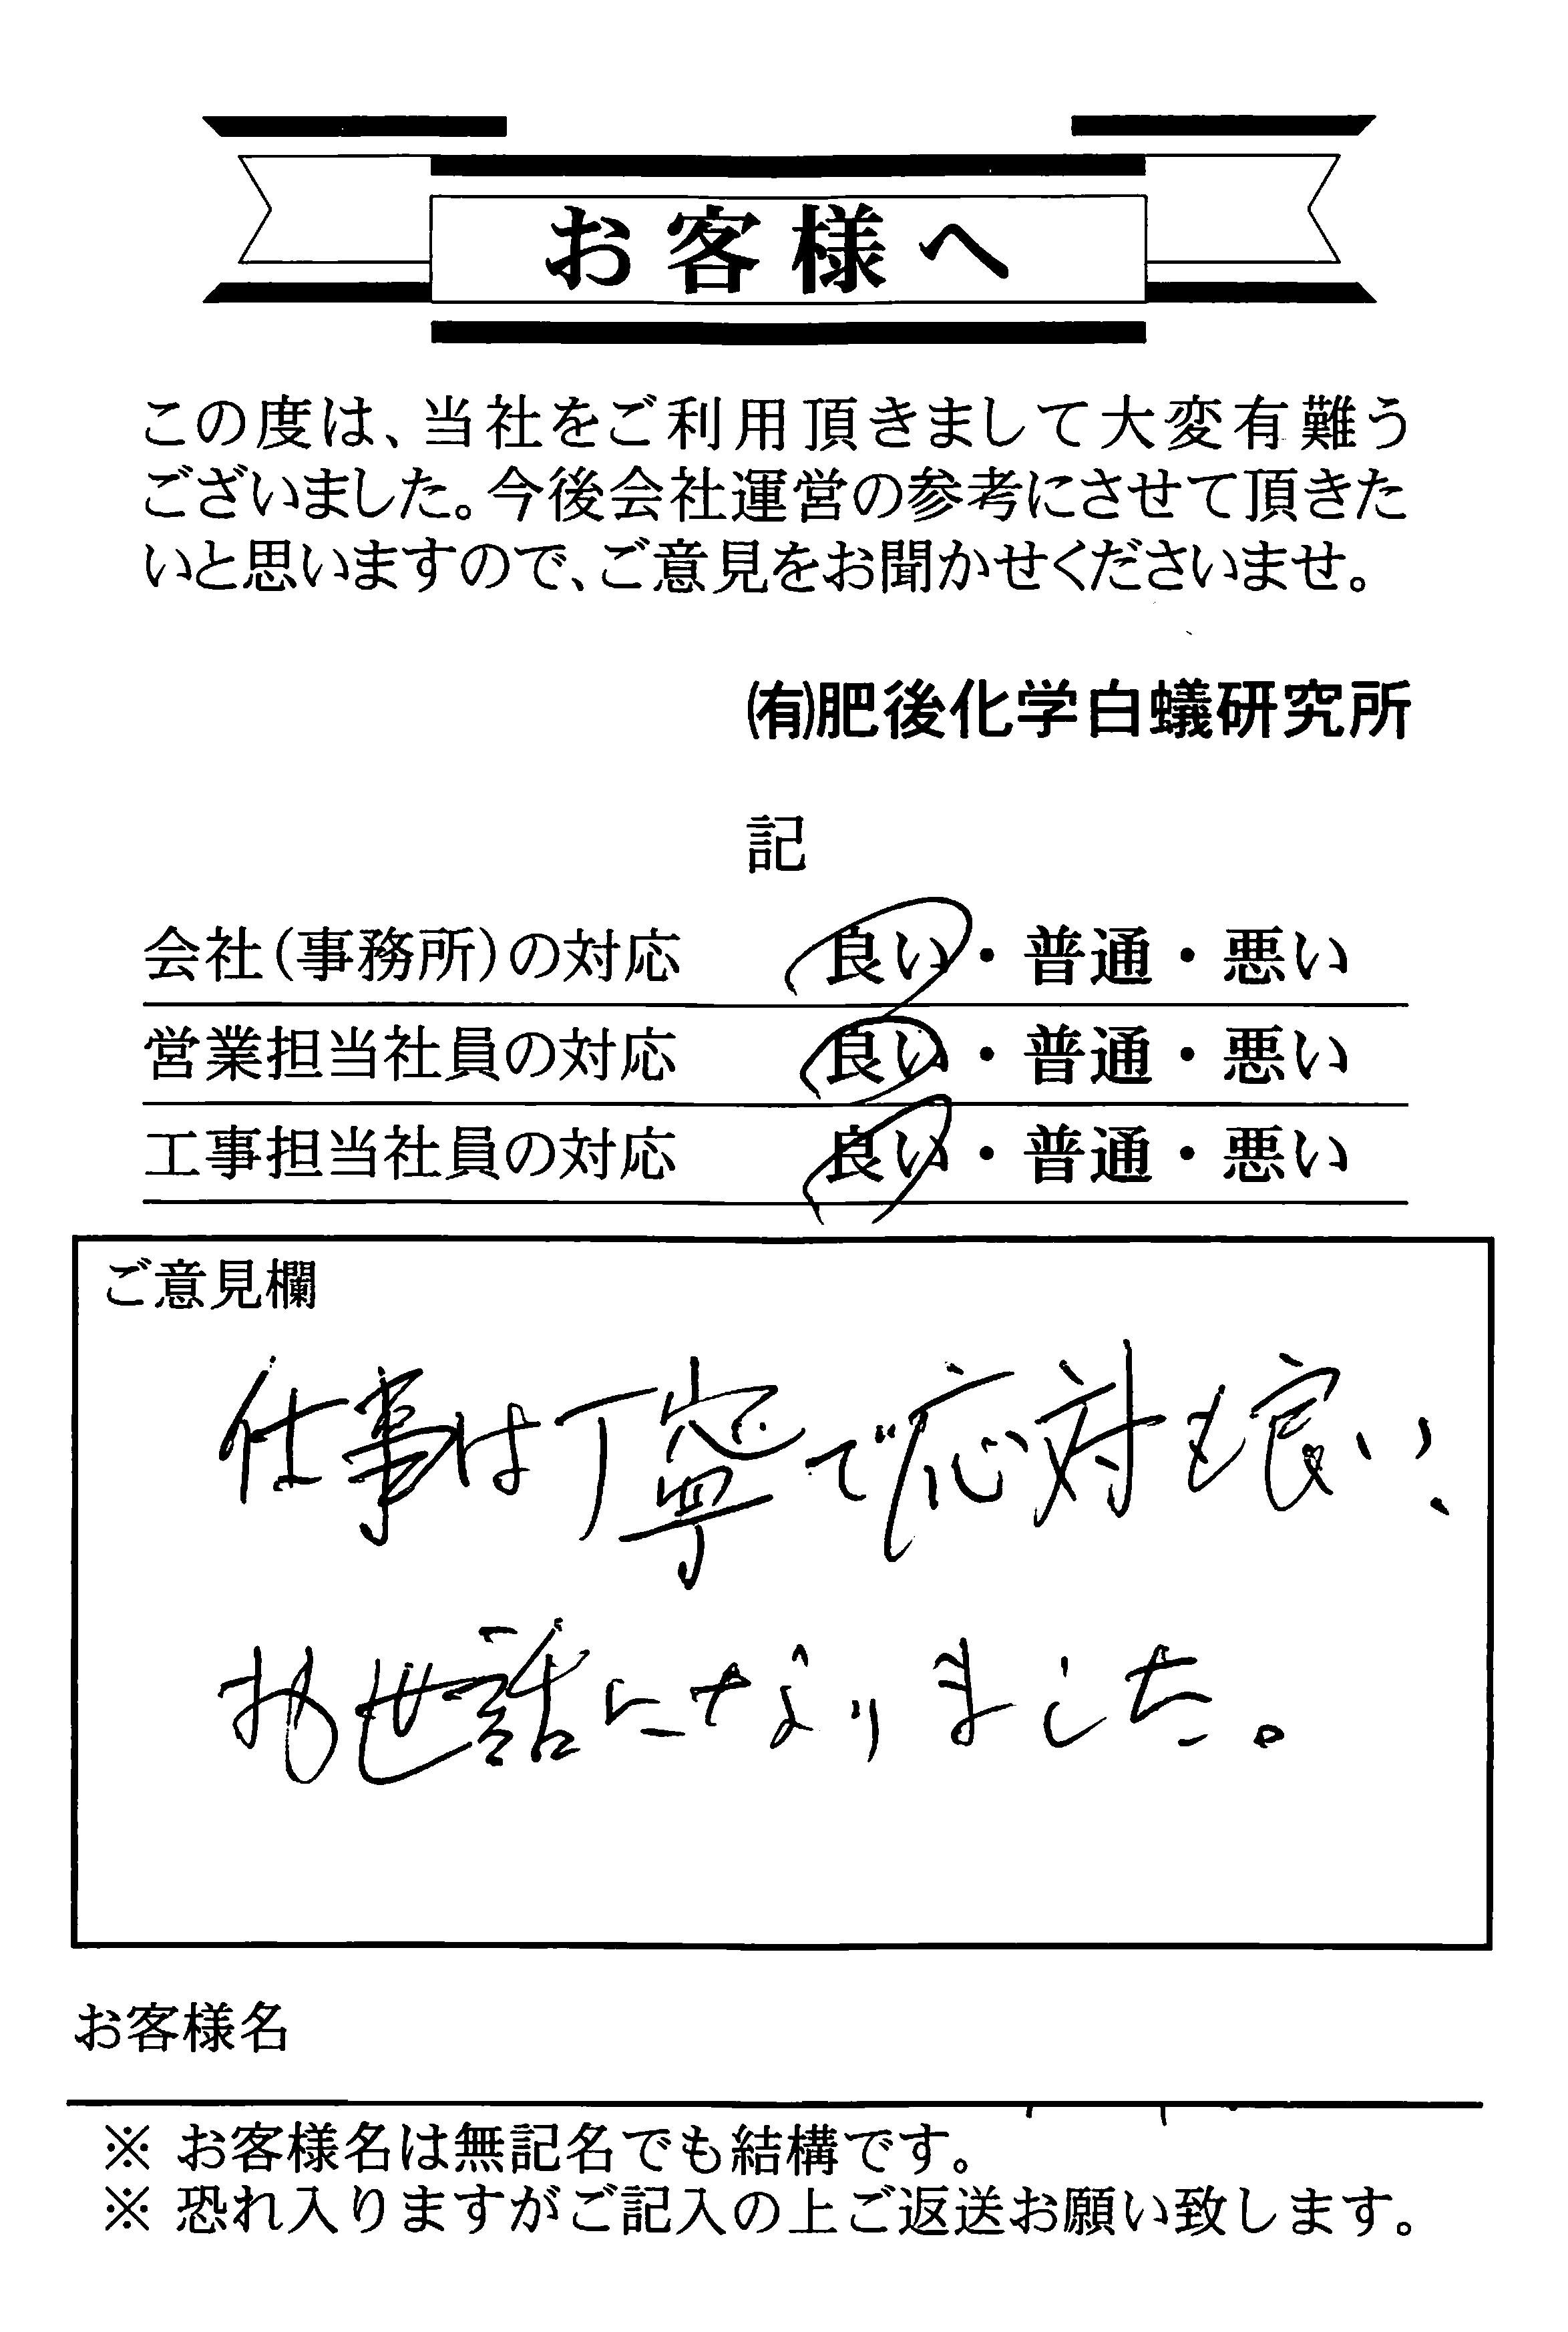 お客様へ
この度は、当社をご利用頂きまして大変有難う
ございました。今後会社運営の参考にさせて頂きた
いと思いますので、ご意見をお聞かせくださいませ。
㈲肥後化学白蟻研究所
記
会社(事務所)の対応 良い・普通・悪い
営業担当社員の対応 良い・普通・悪い
工事担当社員の対応 良い・普通・悪い
ご意見欄
仕事は丁寧で応対も良い、
お世話になりました。
お客様名
※ お客様名は無記名でも結構です。
※ 恐れ入りますがご記入の上ご返送お願い致します。